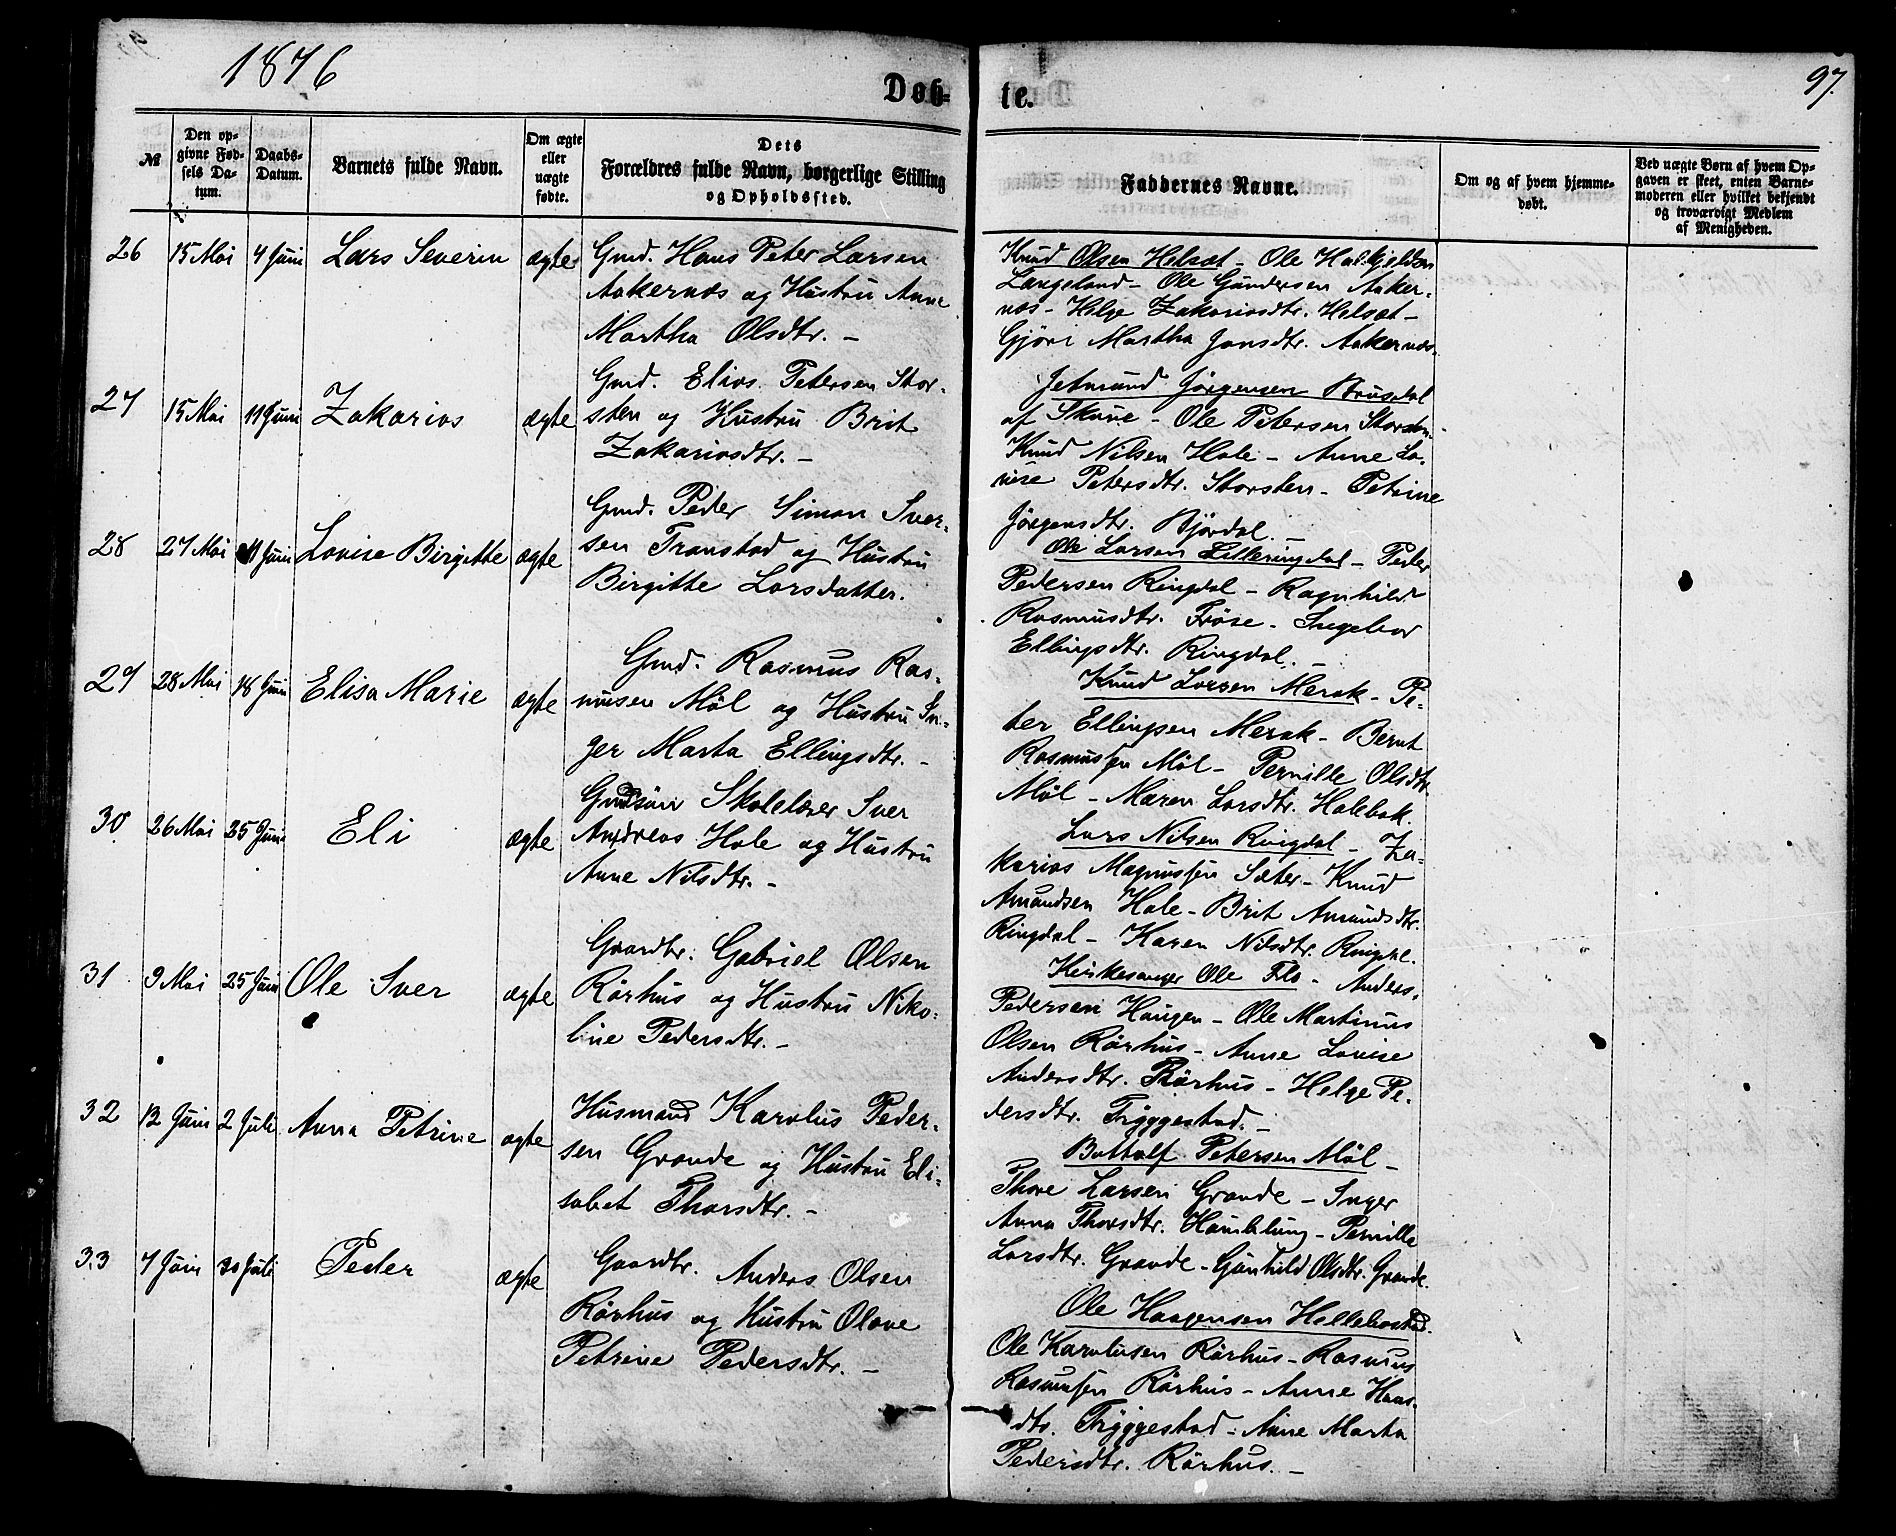 1876
Døb-
te.
97.
№
Den op-
givne Fød-
sels Da-
tum.
Daabs-
Datum.
Barnets fulde Navn.
Om ægte
eller
uægte
fødte.
Dets
Forældres fulde Navn, borgerlige Stilling
og Opholdssted.
Faddernes Navne.
Om og af hvem hjemme-
døbt.
Ved uægte Børn af hvem Op-
gaven er skeet, enten Barne-
moderen eller hvilket bekjendt
og troværdigt Medlem
af Menigheden.
26 15 Mai 4 Juni Lars Severin ægte
Gmd. Hans Peter Larsen
Aakernæs og Hustru Anne
Martha Olsdtr. -
Knud Olsen Helsæt - Ole Halkjeldsen
Langeland - Ole Gundersen Aaker-
næs - Helge Zakariasdtr. Helsæt -
Gjøri Martha Jonsdtr. Aakernæs.
27 15 Mai 11 Juni Zakarias ægte
Gmd. Elias Petersen Stor-
sten og Hustru Brit
Zakariasdtr. -
Jetmund Jørgensen Brusdal
af Skaue - Ole Petersen Storsten -
Knud Nilsen Hole - Anne Lo-
vise Petersdtr. Storsten - Petrine
Jørgensdtr. Bjørdal. -
28 27 Mai 11 Juni Lovise Birgitte ægte
Gmd. Peder Simon Iver-
sen Transtad og Hustru
Birgitte Larsdatter.
Ole Larsen Lilleringdal - Peder
Pedersen Ringdal - Ragnhild
Rasmusdtr. Frøse - Ingebor
Ellingsdtr. Ringdal. -
29 28 Mai 18 Juni Elisa Marie ægte
Gmd. Rasmus Ras-
musen Møl og Hustru In-
ger Marta Ellingsdtr. -
Knud Larsen Merok - Pe-
ter Ellingsen Merok - Bernt
Rasmussen Møl - Pernille Olsdtr.
Møl - Maren Larsdtr. Holebak.
30 26 Mai 25 Juni Eli ægte
Gmdsøn Skolelærer Iver
Andreas Hole og Hustru
Anne Nilsdtr. -
Lars Nilsen Ringdal - Za-
karias Magnussen Sæter - Knud
Amundsen Hole - Brit Amundsdtr.
Ringdal - Karen Nilsdtr. Ringdal.
31 9 Mai 25 Juni Ole Iver ægte
Gaardbr. Gabriel Olsen
Rørhus og Hustru Niko-
line Pedersdtr. -
Kirkesanger Ole Flo - Anders
Pedersen Haugen - Ole Martinus
Olsen Rørhus - Anne Lovise
Andersdtr. Rørhus - Helge Pe-
dersdtr. Tryggestad. -
32 12 Juni 2 Juli Anna Petrine ægte
Husmand Karolus Peder-
sen Grande og Hustru Eli-
sabet Thorsdtr. -
Bottolf Petersen Møl -
Thore Larsen Grande - Inger
Anna Thorsdtr. - Pernille
Larsdtr. Grande - Gunhild Olsdtr. Grande.
33 7 Juni 30 Juli Peder ægte
Gaardbr. Anders Olsen
Rørhus og Hustru Olave
Petrine Pedersdtr. -
Ole Haagensen Hellebostad.
Ole Karolusen Rørhus - Rasmus
Rasmussen Rørhus - Anne Hans-
dtr. Tryggestad - Anne Marta
Pedersdtr. Rørhus. -